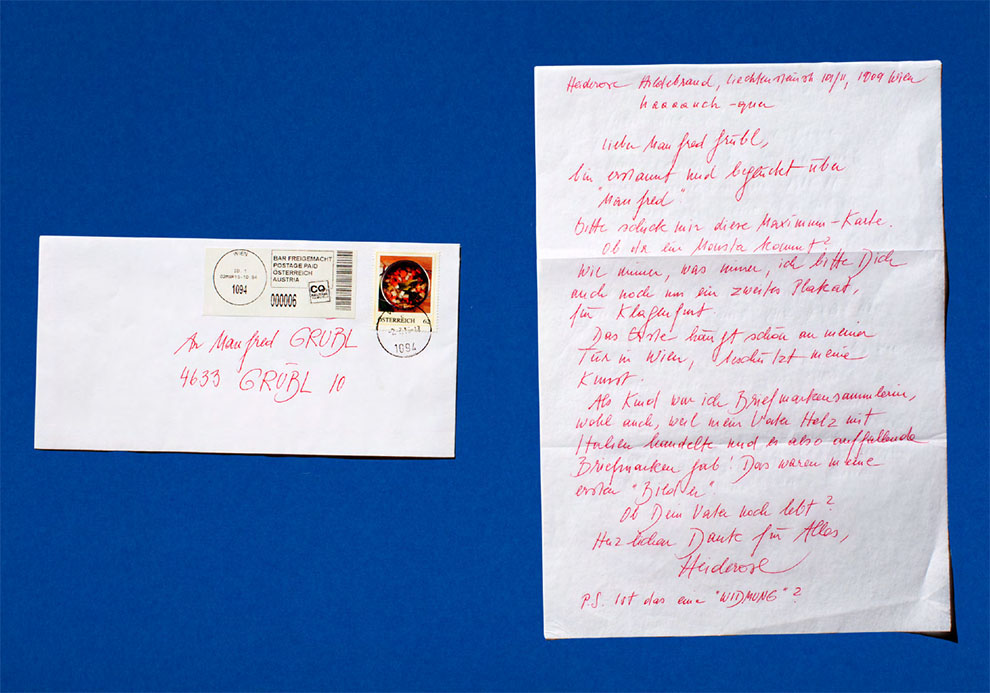 WIEN
1094
BAR FREIGEMACHT
POSTAGE PAID
ÖSTERREICH
AUSTRIA
CO₂
000006
ÖSTERREICH 62
1094
An Manfred GRÜBL
4633 GRÜBL 10
Heiderose Hildebrand, Liechtensteinstr 101/11, 1909 Wien
Lieber Manfred Grübl,
bin erstaunt und beglückt über
"Manfred"
Bitte schick mir diese Maximum-Karte.
Ob da ein Monsta kommt?
Wie immer, was immer, ich bitte Dich
auch noch um ein zweites Plakat,
für Klagenfurt.
Das Erste hängt schon an meiner
Tür in Wien, beschützt meine
Kunst.
Als Kind war ich Briefmarkensammlerin,
wohl auch, weil mein Vater Holz mit
Italien handelte und es also auffallende
Briefmarken gab! Das waren meine
ersten "Bilder"
Ob Dein Vater noch lebt?
Herzlichen Dank für Alles,
Heiderose
P.S. Ist das eine "WIDMUNG"?